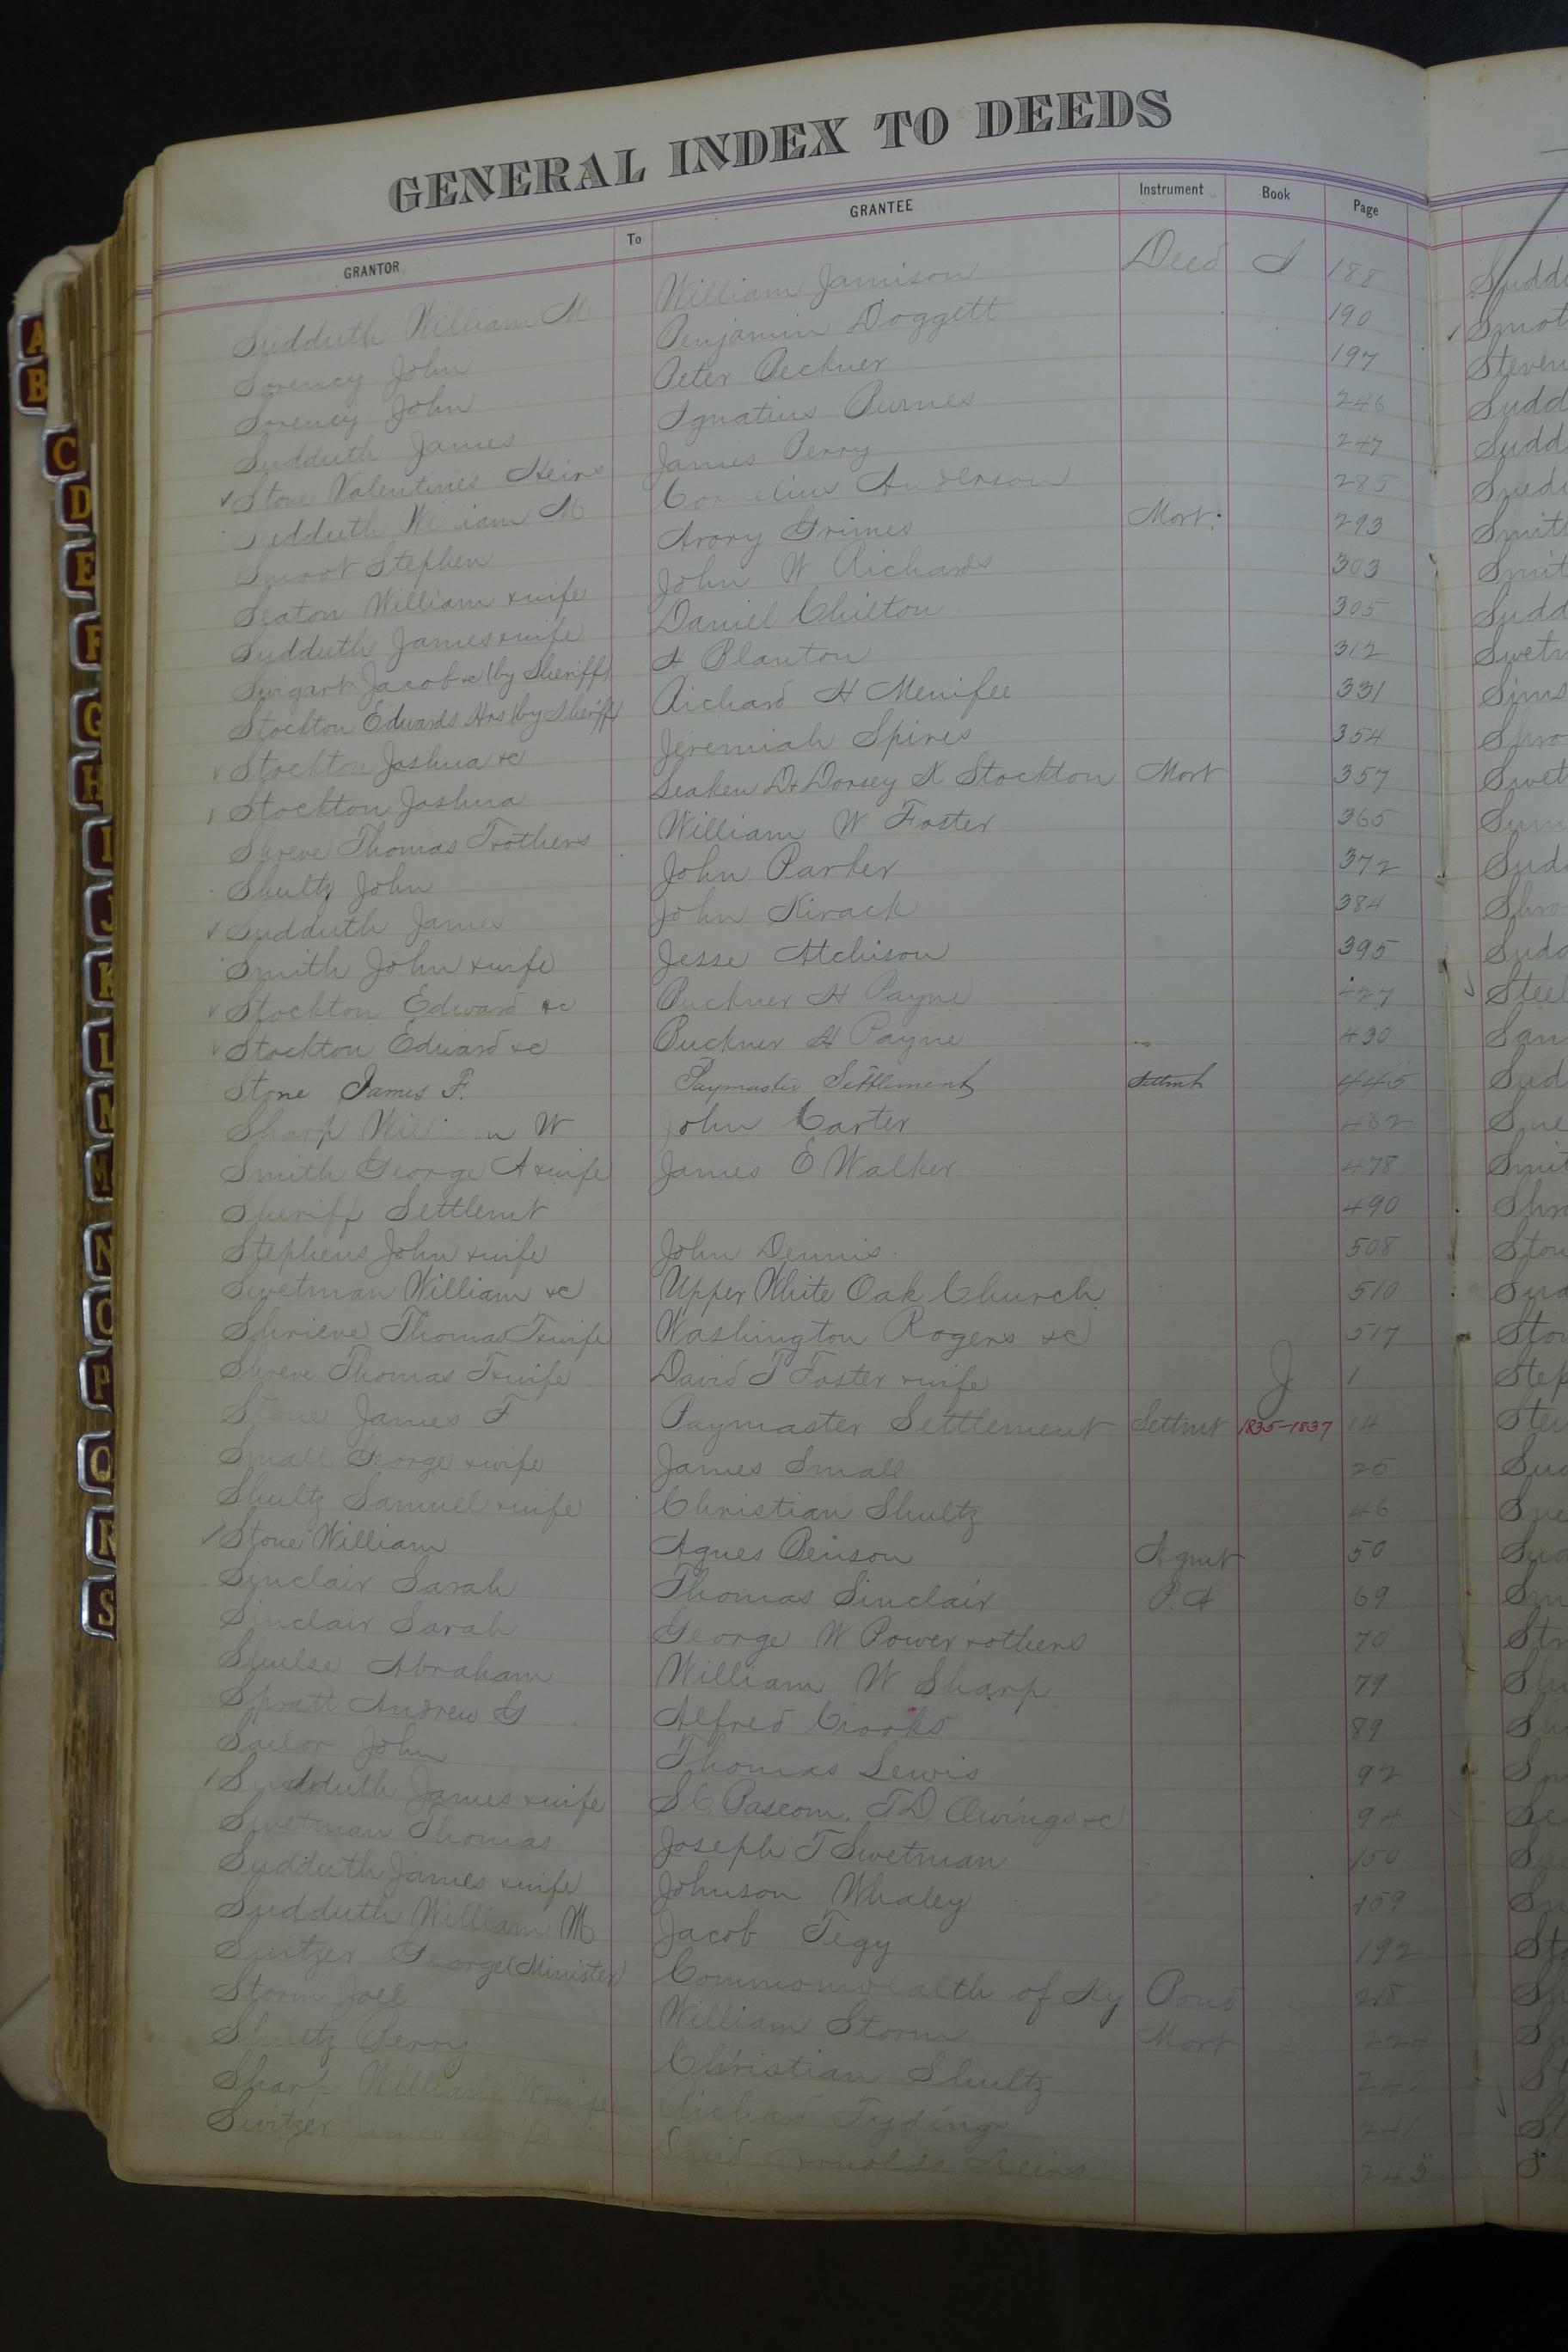 GENERAL INDEX TO DEEDS
GRANTOR To GRANTEE Instrument Book Page
Sudduth William M William Jamison Deed I 188
Sorency John Benjamin Doggett 190
Sorency John Peter Beckner 197
Sudduth James Ignatius Burnes 246
Stone Valentine's Heirs James Berry 247
Sudduth William M Cornelius Anderson 285
Smoot Stephen Avory Grimes Mort. 293
Seaton William &wife John W Richards 303
Sudduth James &wife Daniel Chilton 305
Swigart Jacob &c (by Sheriff) H Blanton 312
Stockton Edwards Hrs (by Sheriff) Richard H Menifee 331
Stockton Joshua &c Jeremiah Spires 354
Stockton Joshua Dorsey K Stockton Mort 357
Shreve Thomas T &others William W Foster 365
Shultz John John Parker 372
Sudduth James John Kirack 384
Smith John &wife Jesse Atchison 395
Stockton Edward &c Buckner H Payne 427
Stockton Edward &c Buckner H Payne " 430
Stone James F. Paymaster Settlement Settmt 445
Sharp William W John Carter 462
Smith George A &wife James E Walker 478
Sheriff Settlemt 490
Stephens John &wife John Dennis 508
Swetman William &c Upper White Oak Church 510
Shrieve Thomas T &wife Washington Rogers &c 517
Shreve Thomas T &wife David T Foster &wife J 1
Stone James F Paymaster Settlement Settmt 1835-1837 14
Small George &wife James Small 25
Shultz Samuel &wife Christian Shultz 46
Stone William Agnes Benson Agmt 50
Sinclair Sarah Thomas Sinclair P.A 69
Sinclair Sarah George W Power &others 70
Shulse Abraham William W Sharp 79
Spratt Andrew G Alfred Crooks 89
Sailor John Thomas Lewis 92
Sudduth James &wife S C Bascom, T D Owings &c 94
Swetman Thomas Joseph T Swetman 150
Sudduth James &wife Johnson Whaley 159
Sudduth William M Jacob Tegy 192
Switzer George (Minister) Commonwealth of Ky Bond 218
Storm Joel William Storm Mort 224
Shultz Berry Christian Shultz
Sharp William W &wife Richard Tydings 241
Switzer James &wife David Heirs 243